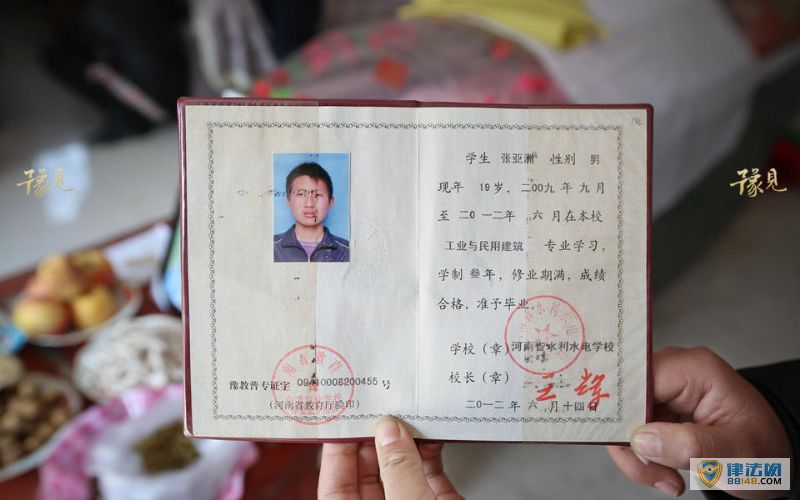 豫見
豫見
学生 张亚洲 性别 男
现年 19岁,二00九年 九月
至 二0一二年 六月在本校
工业与民用建筑 专业学习,
学制 叁年,修业期满,成绩
合格,准予毕业。
学校(章)河南省水利水电学校
校长(章)
二0一二年 六月十四日
豫教普专证字 09410008200455 号
(河南省教育厅验印)
律法网
88148.COM